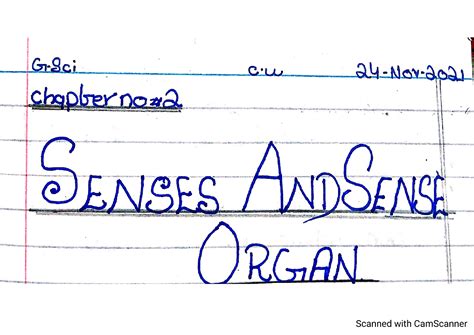 G.Sci C.W 24-Nov-2021
Chapter no#2
SENSES AND SENSE
ORGAN
Scanned with CamScanner